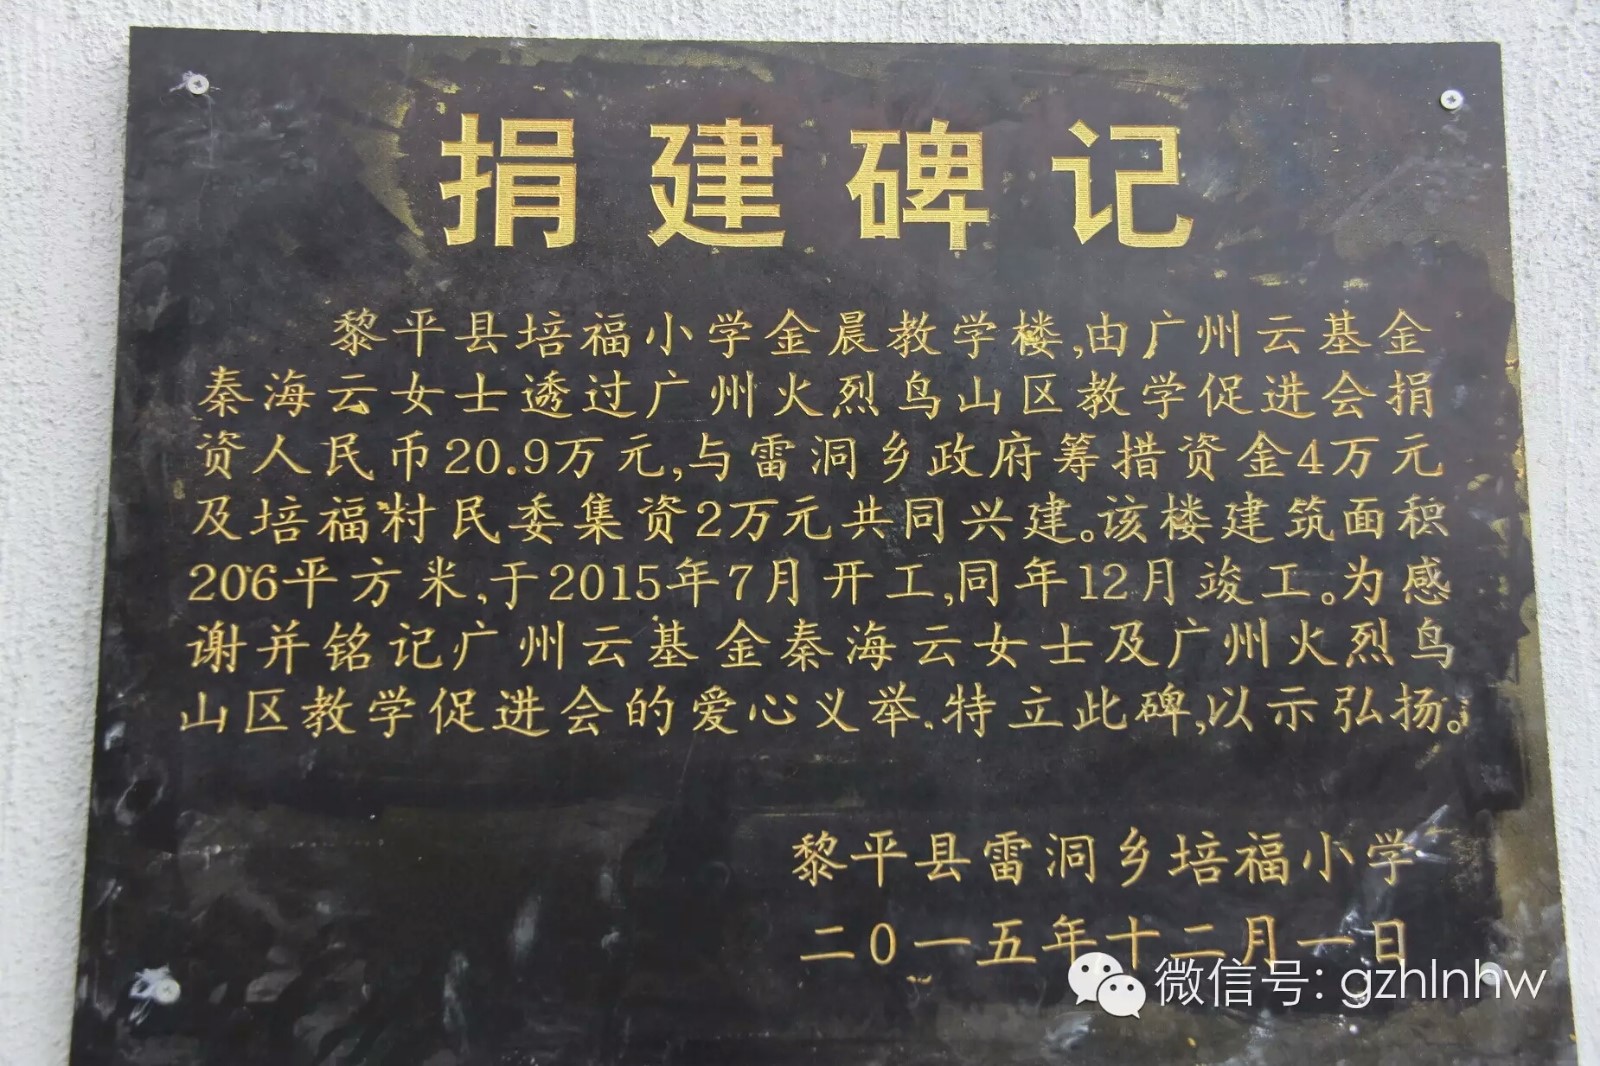 捐建碑记
黎平县培福小学金晨教学楼,由广州云基金
秦海云女士透过广州火烈鸟山区教学促进会捐
资人民币20.9万元,与雷洞乡政府筹措资金4万元
及培福村民委集资2万元共同兴建。该楼建筑面积
206平方米,于2015年7月开工,同年12月竣工。为感
谢并铭记广州云基金秦海云女士及广州火烈鸟
山区教学促进会的爱心义举.特立此碑,以示弘扬。
黎平县雷洞乡培福小学
二0一五年十二月一日
微信号: gzhlnhw